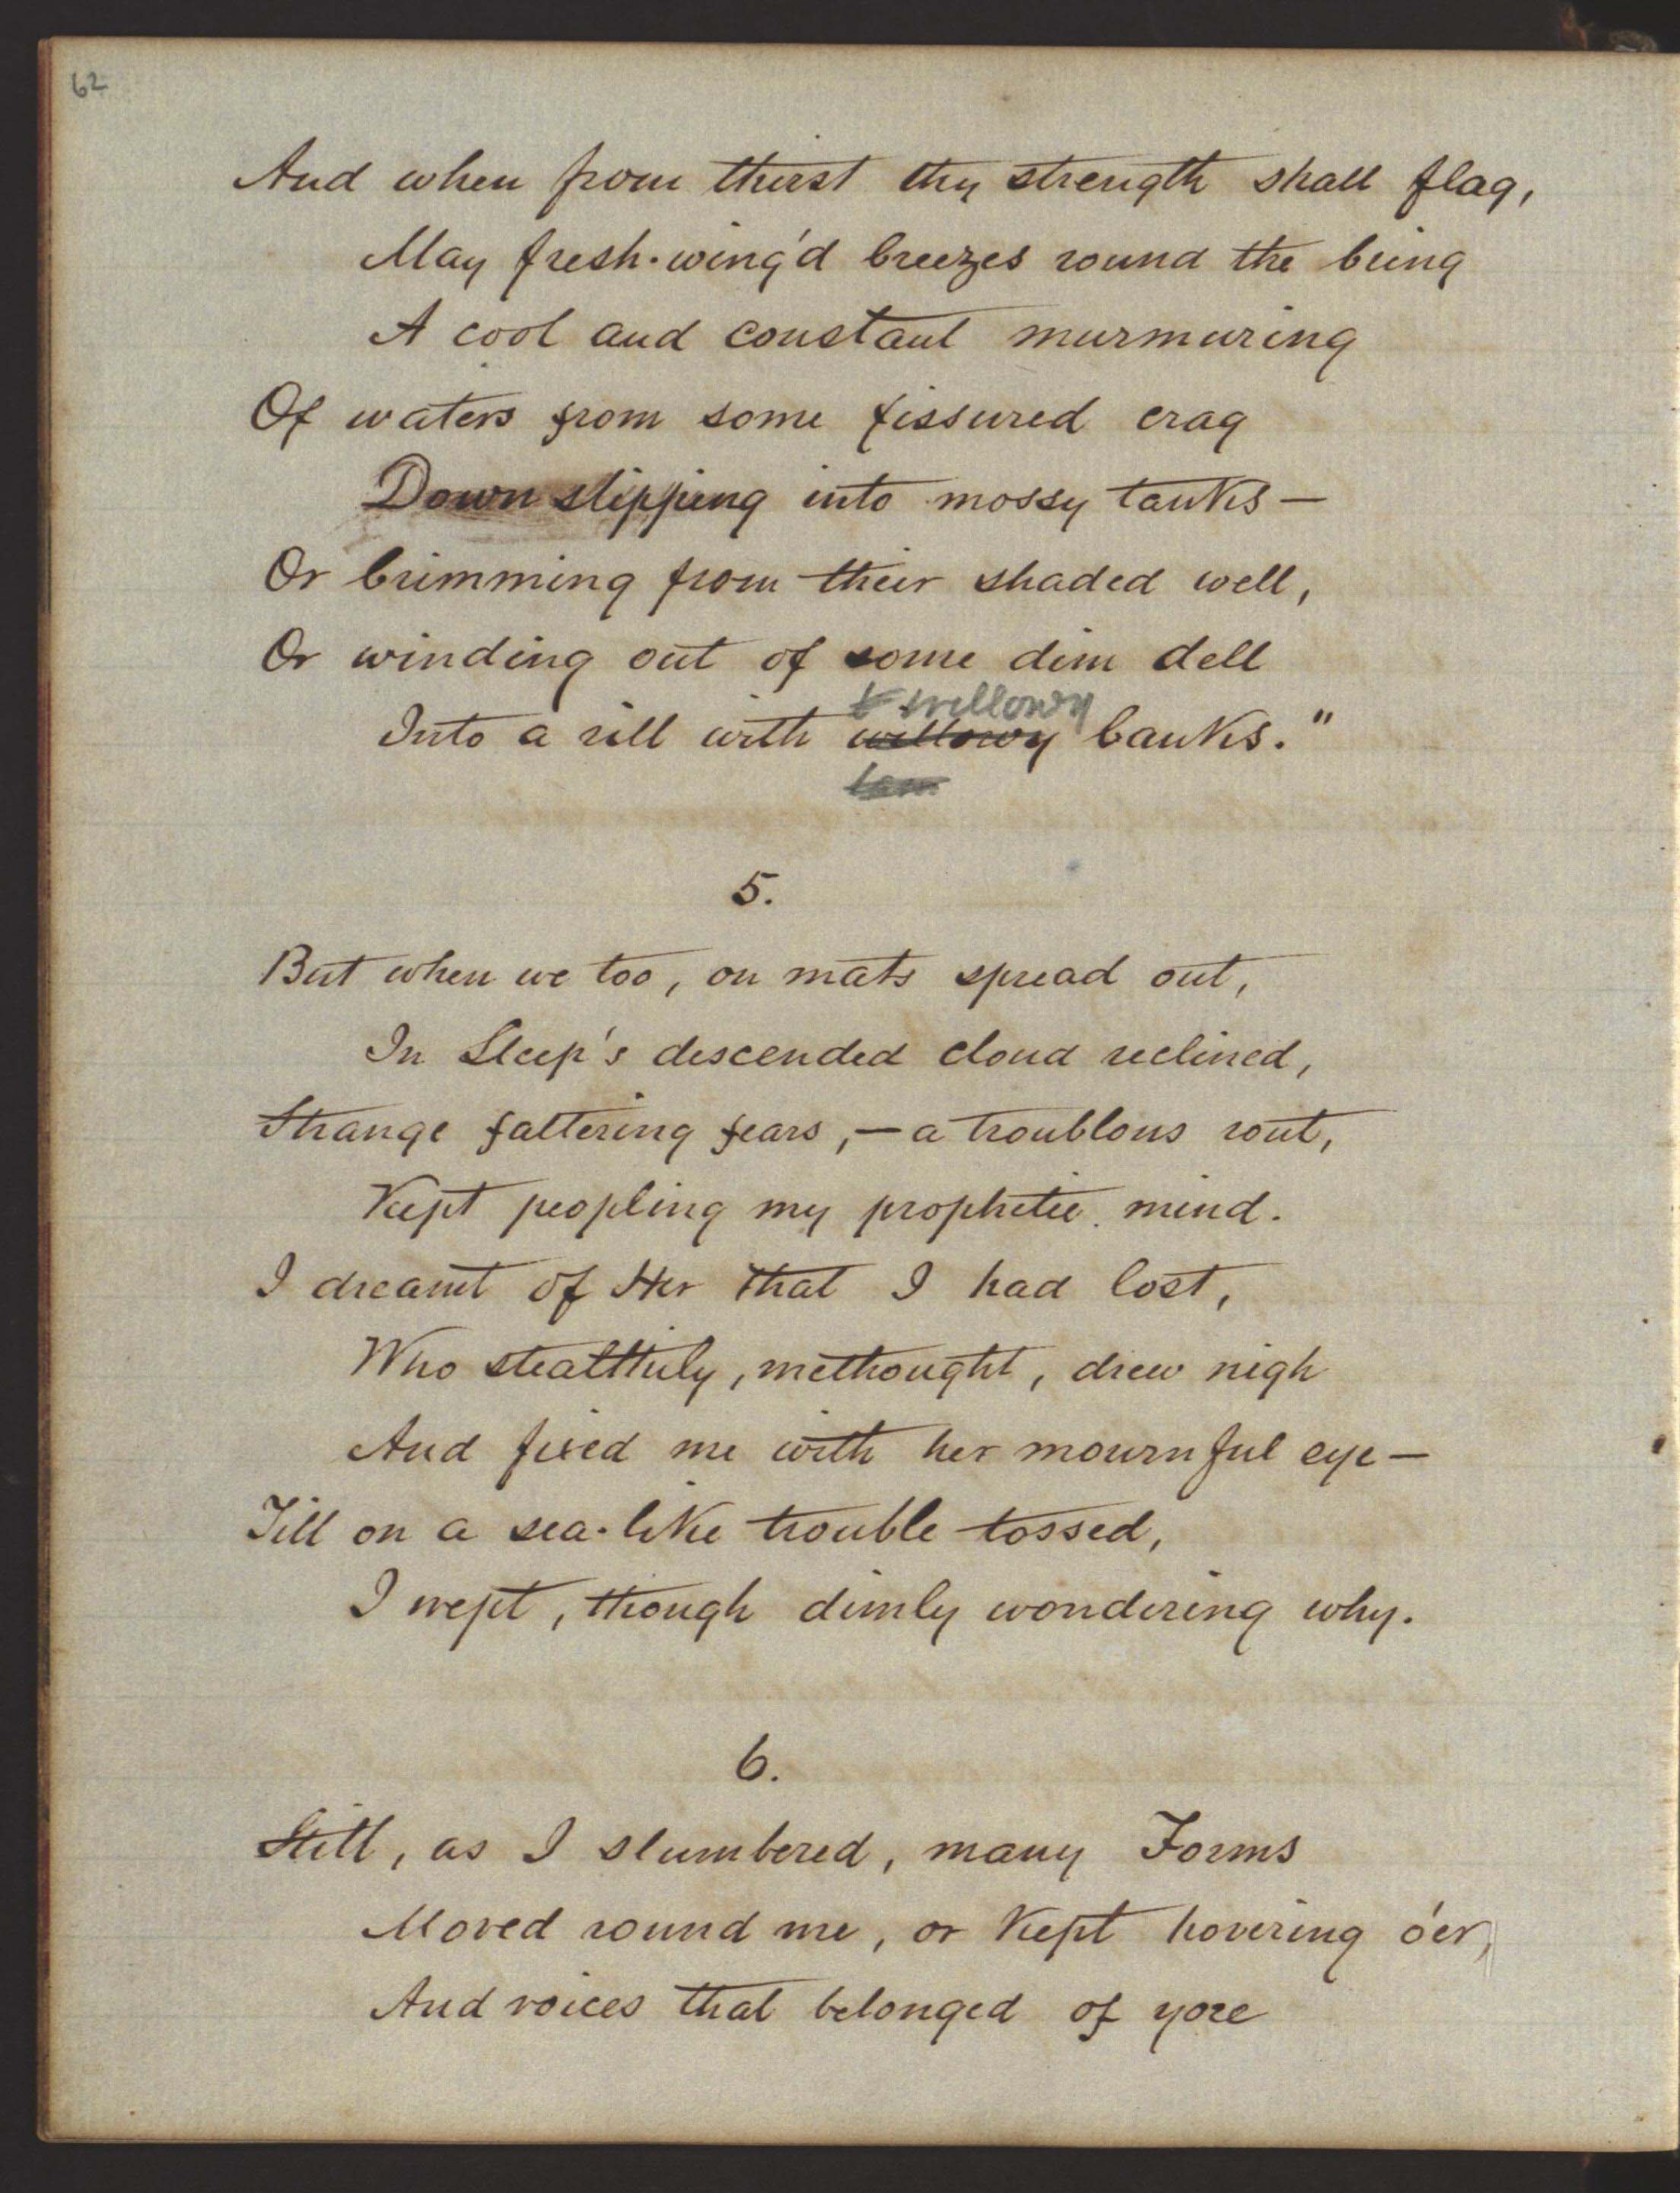 62
And when from thirst thy strength shall flag,
May fresh-wing'd breezes round the bring
A cool and constant murmuring
Of waters from some fissured crag
Down slipping into mossy tanks —
Or brimming from their shaded well,
Or winding out of some dim dell
willowy
Into a rill with willowy banks."
5.
But when we too, on mats spread out,
In Sleep's descended cloud reclined,
Strange faltering fears, — a troublous rout,
Kept peopling my prophetic mind.
I dreamt of Her that I had lost,
Who stealthily, methought, drew nigh
And fixed me with her mournful eye —
Till on a sea-like trouble tossed,
I wept, though dimly wondering why.
6.
Still, as I slumbered, many Forms
Moved round me, or kept hovering o'er,
And voices that belonged of yore